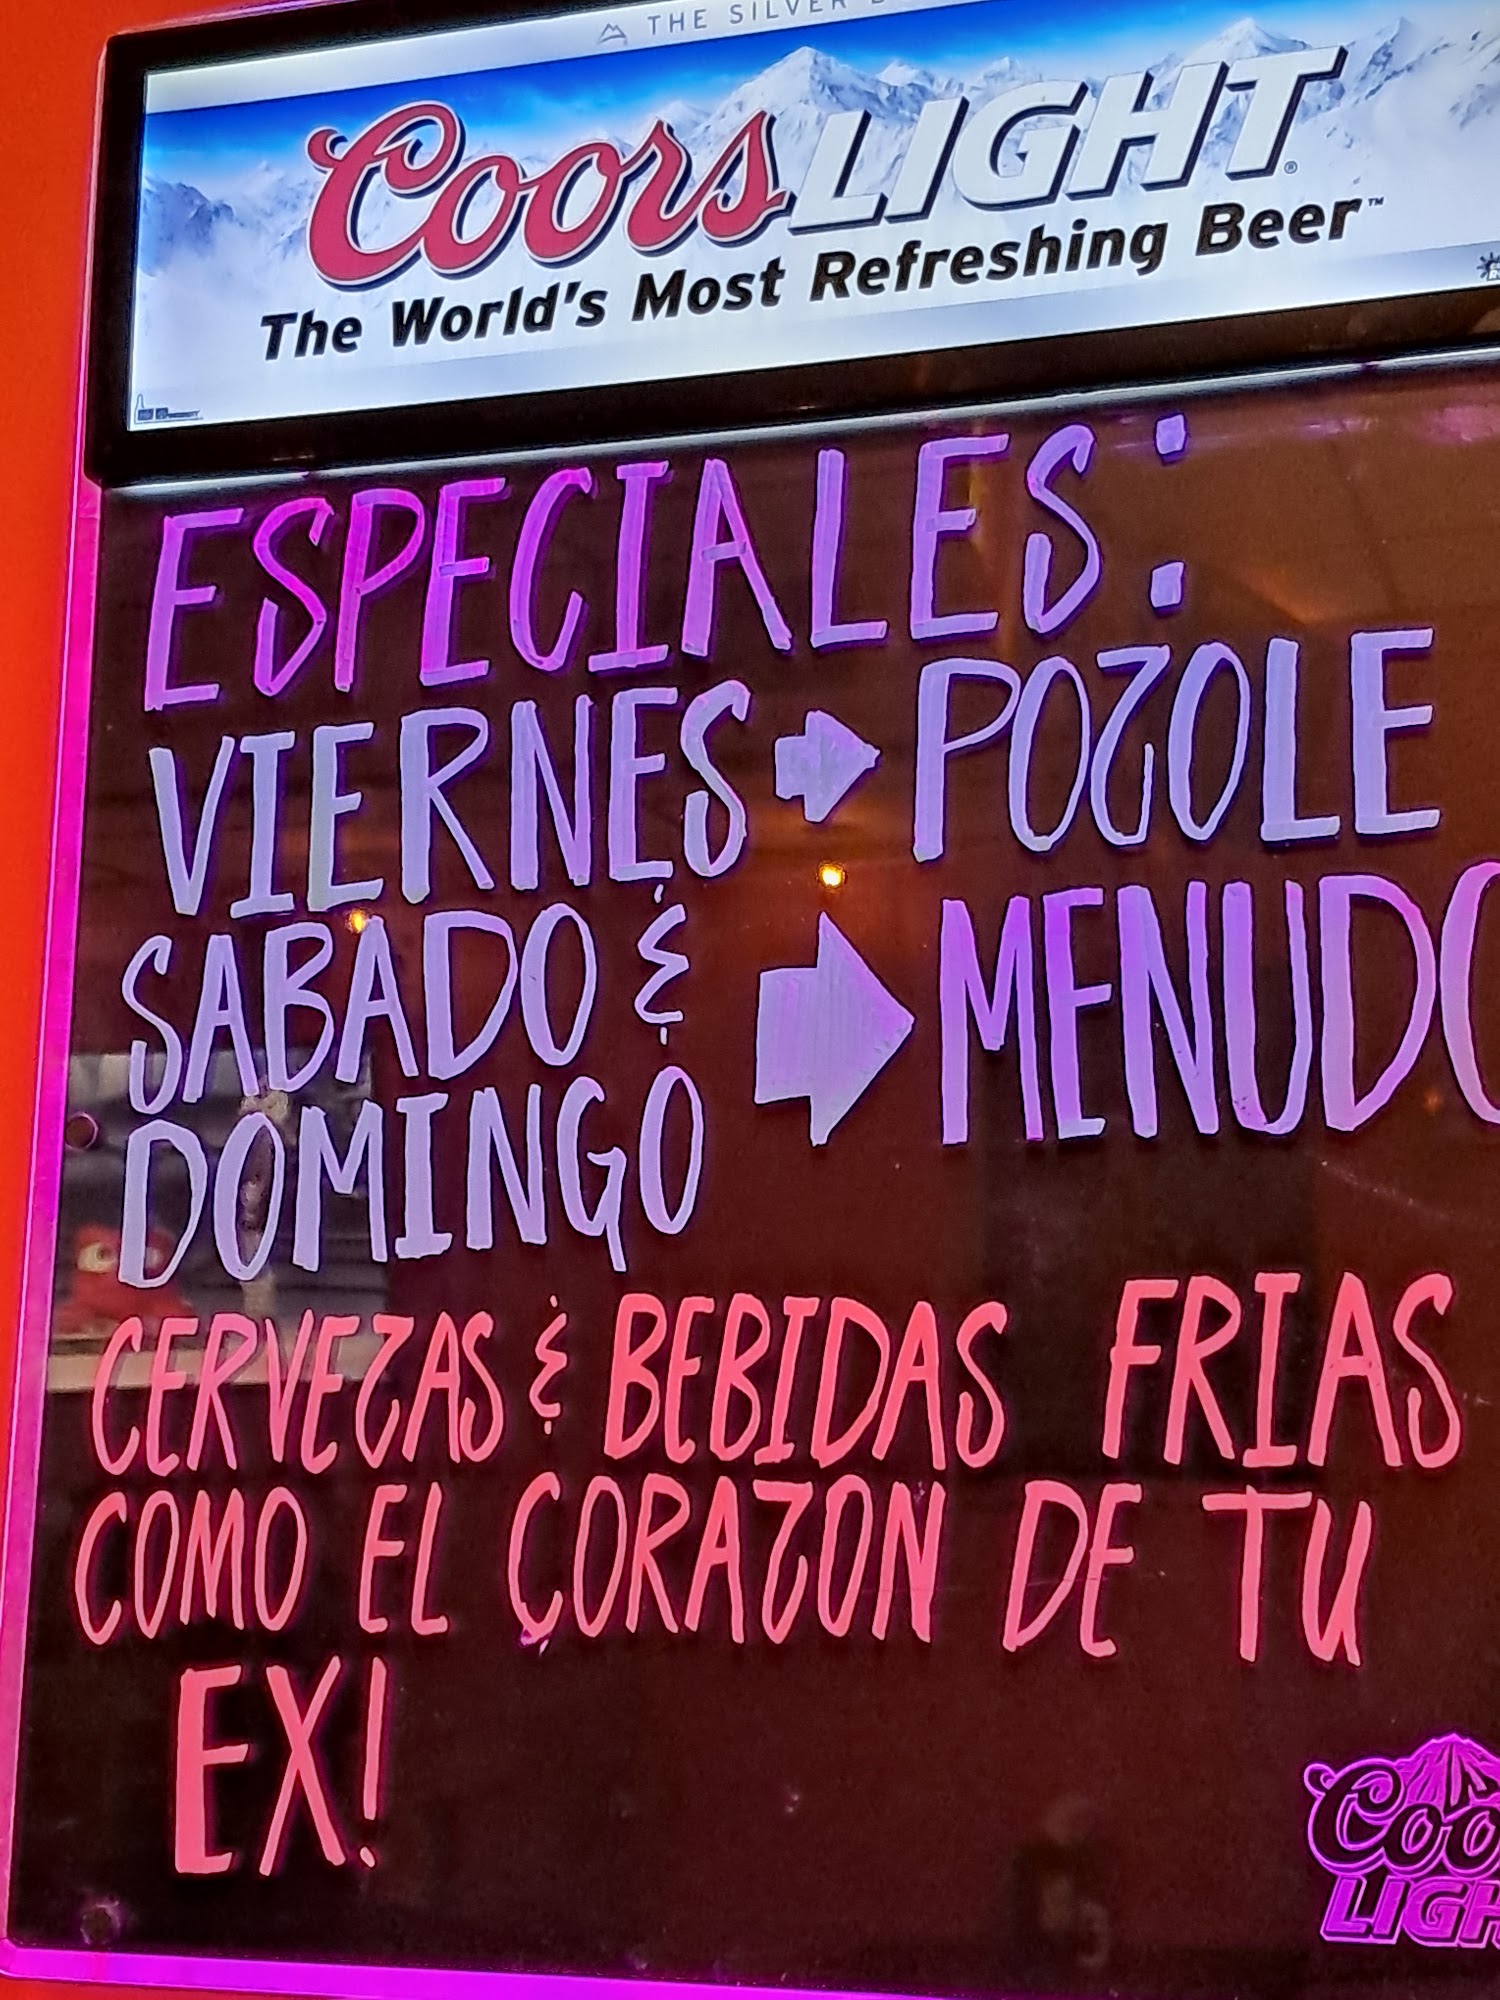 THE SILVER
Coors LIGHT®
The World's Most Refreshing Beer™
ESPECIALES:
VIERNES → POZOLE
SABADO & → MENUDO
DOMINGO
CERVEZAS & BEBIDAS FRIAS
COMO EL CORAZON DE TU
EX!
Coo
LIGH